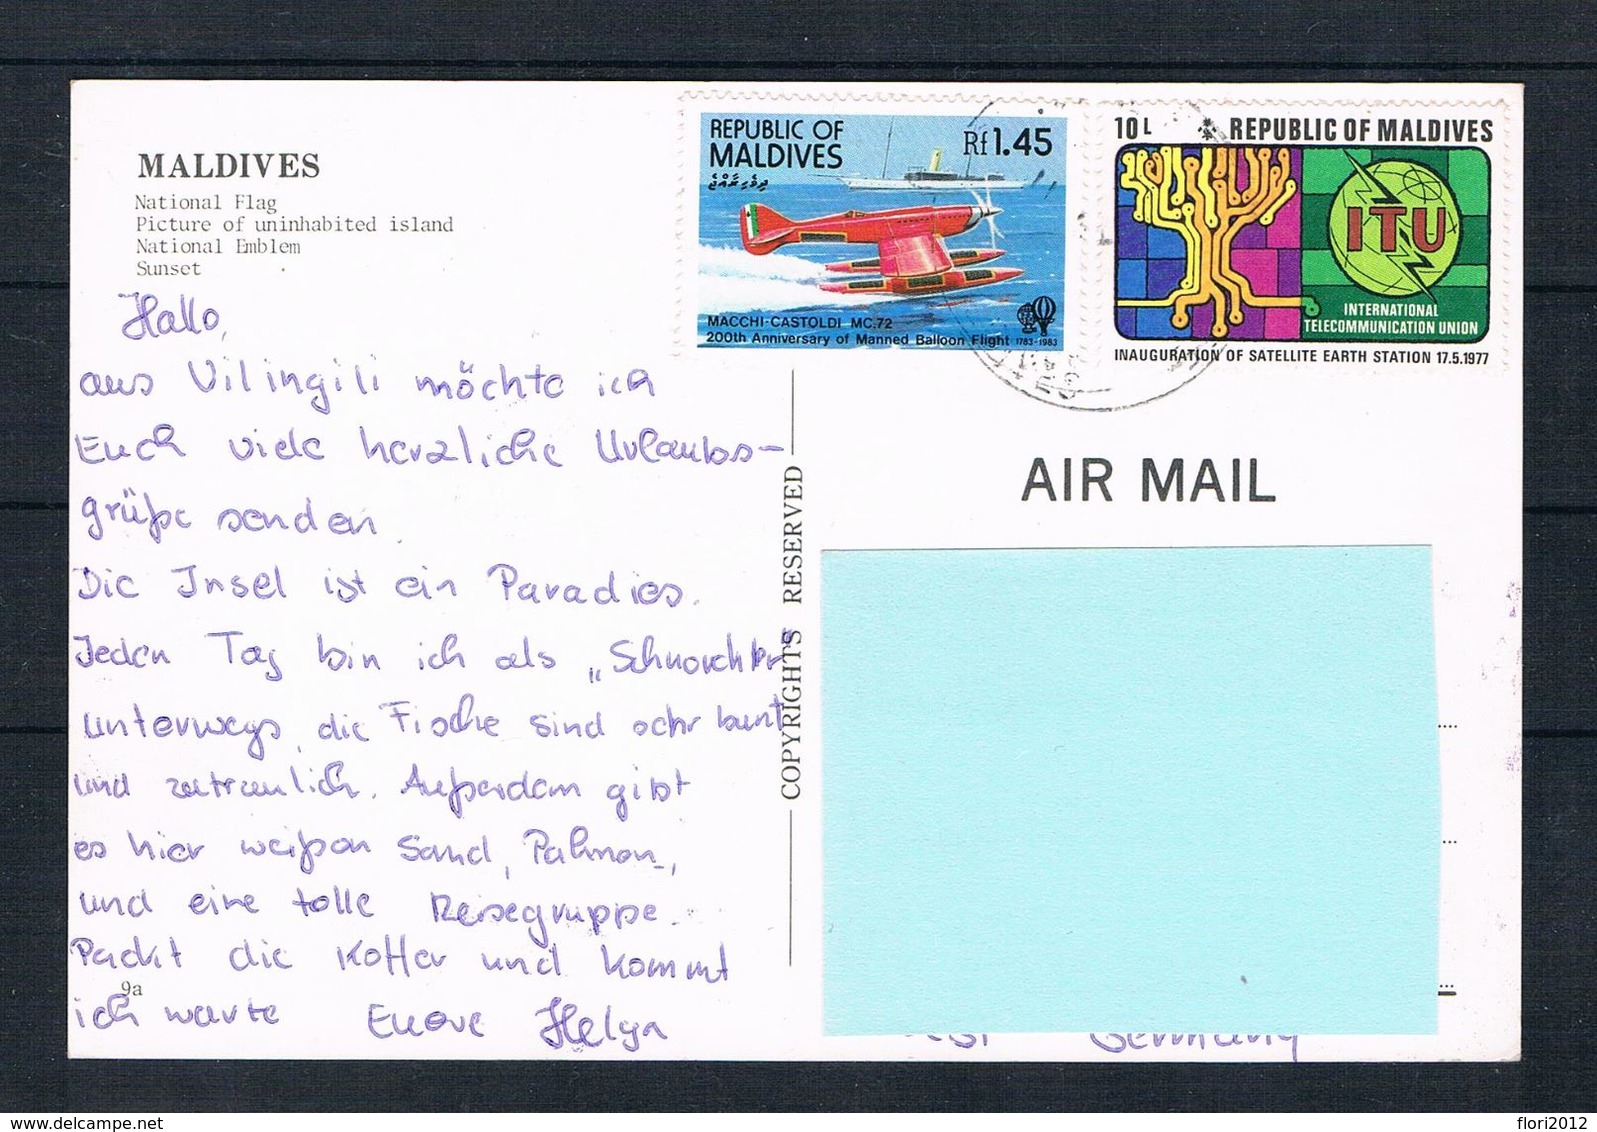 MALDIVES
National Flag
Picture of uninhabited island
National Emblem
Sunset
Hallo,
aus Vilingili möchte ich
Euch viele herzliche Urlaubs-
grüße senden.
Die Insel ist ein Paradies.
Jeden Tag bin ich als „Schnorchler
unterwegs, die Fische sind sehr bunt
und zutraulich. Außerdem gibt
es hier weißen Sand, Palmen,
und eine tolle Reisegruppe.
Packt die Koffer und kommt
9a
ich warte Euere Helga
COPYRIGHTS RESERVED
REPUBLIC OF
MALDIVES
Rf 1.45
ދިވެހިރާއްޖެ
MACCHI-CASTOLDI MC.72
200th Anniversary of Manned Balloon Flight 1783-1983
10 L REPUBLIC OF MALDIVES
ITU
INTERNATIONAL
TELECOMMUNICATION UNION
INAUGURATION OF SATELLITE EARTH STATION 17.5.1977
AIR MAIL
Germany
flori2012